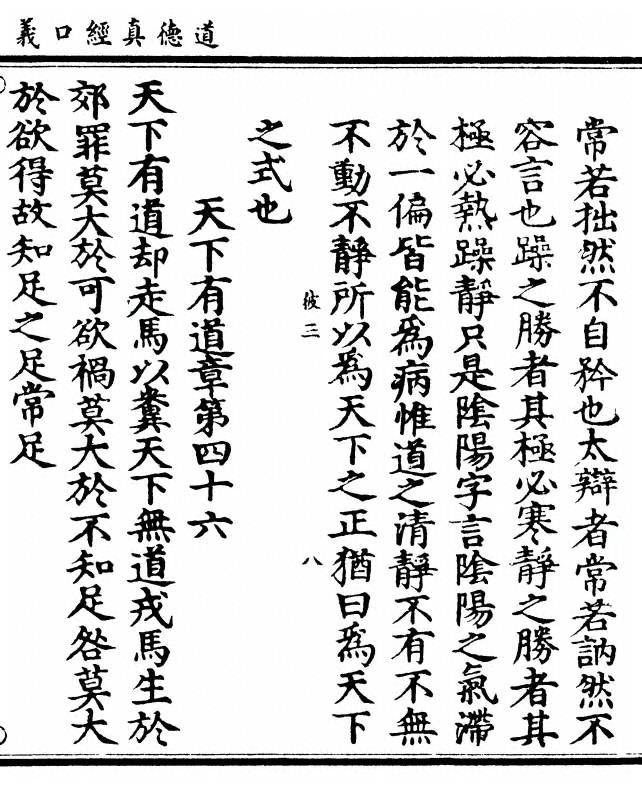 道德真經口義
常若拙然不自矜也太辯者常若訥然不
容言也躁之勝者其極必寒靜之勝者其
極必熱躁靜只是陰陽字言陰陽之氣滯
於一偏皆能為病惟道之清靜不有不無
不動不靜所以為天下之正猶曰為天下
彼三
八
之式也
天下有道章第四十六
天下有道却走馬以糞天下無道戎馬生於
郊罪莫大於可欲禍莫大於不知足咎莫大
於欲得故知足之足常足